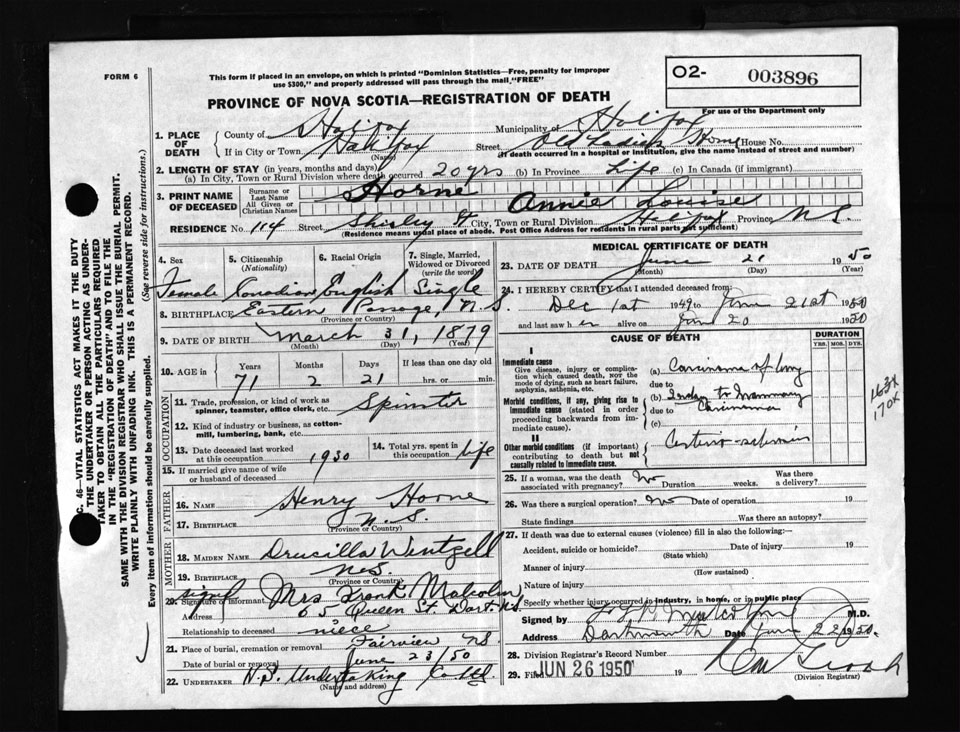 FORM 6
This form if placed in an envelope, on which is printed "Dominion Statistics—Free, penalty for improper
use $300," and properly addressed will pass through the mail, "FREE"
O2- 003896
For use of the Department only
PROVINCE OF NOVA SCOTIA—REGISTRATION OF DEATH
1. PLACE OF DEATH County of Halifax Municipality of Halifax
If in City or Town Halifax (Name) Street Old Home House No.
(If death occurred in a hospital or institution, give the name instead of street and number)
2. LENGTH OF STAY (in years, months and days)
(a) In City, Town or Rural Division where death occurred 20 yrs (b) In Province Life (c) In Canada (if immigrant)
3. PRINT NAME OF DECEASED Surname or Last Name Horne
All Given or Christian Names Annie Louise
RESIDENCE No. 114 Street Shirley St City, Town or Rural Division Halifax Province N.S.
(Residence means usual place of abode. Post Office Address for residents in rural parts not sufficient)
4. Sex Female
5. Citizenship (Nationality) Canadian
6. Racial Origin English
7. Single, Married, Widowed or Divorced (write the word) Single
8. BIRTHPLACE Eastern Passage, N.S.
(Province or Country)
9. DATE OF BIRTH March 31, 1879
(Month) (Day) (Year)
10. AGE IN Years 71 Months 2 Days 21 If less than one day old hrs. or min.
OCCUPATION
11. Trade, profession, or kind of work as spinner, teamster, office clerk, etc. Spinster
12. Kind of industry or business, as cotton-mill, lumbering, bank, etc.
13. Date deceased last worked at this occupation 1930
14. Total yrs. spent in this occupation life
15. If married give name of wife or husband of deceased
FATHER
16. Name Henry Horne
17. Birthplace N.S.
(Province or Country)
MOTHER
18. Maiden Name Drucilla Wentzell
19. Birthplace N.S.
(Province or Country)
20. Signature of Informant signed Mrs Frank Malcolm
Address 65 Queen St. Dart. N.S.
Relationship to deceased niece
21. Place of burial, cremation or removal Fairview N.S.
Date of burial or removal June 23/50
22. UNDERTAKER N.S. Undertaking Co Ltd.
(Name and address)
MEDICAL CERTIFICATE OF DEATH
23. DATE OF DEATH June 21 1950
(Month) (Day) (Year)
24. I HEREBY CERTIFY that I attended deceased from:
Dec 1st 1949 to June 21st 1950
and last saw her alive on Jun 20 1950
CAUSE OF DEATH
DURATION
YRS. MOS. DYS.
I
Immediate cause
Give disease, injury or complication which caused death, not the mode of dying, such as heart failure, asphyxia, asthenia, etc.
(a) Carcinoma of lung
due to
Morbid conditions, if any, giving rise to immediate cause (stated in order proceeding backwards from immediate cause).
(b) to Mammary
due to Carcinoma
(c)
163X
170X
II
Other morbid conditions (if important) contributing to death but not causally related to immediate cause.
25. If a woman, was the death associated with pregnancy? No Duration weeks. Was there a delivery?
26. Was there a surgical operation? No Date of operation 19
State findings Was there an autopsy?
27. If death was due to external causes (violence) fill in also the following:
Accident, suicide or homicide? Date of injury 19
(State which)
Manner of injury
(How sustained)
Nature of injury
Specify whether injury occurred in industry, in home, or in public place
Signed by M.D.
Address Dartmouth Date Jun 22 1950.
28. Division Registrar's Record Number
29. Filed JUN 26 1950 19
(Division Registrar)
C. 46—VITAL STATISTICS ACT MAKES IT THE DUTY
THE UNDERTAKER OR PERSON ACTING AS UNDERTAKER
TO OBTAIN ALL THE PARTICULARS REQUIRED
IN THE "REGISTRATION OF DEATH" AND TO FILE THE
SAME WITH THE DIVISION REGISTRAR WHO SHALL ISSUE THE BURIAL PERMIT.
WRITE PLAINLY WITH UNFADING INK. THIS IS A PERMANENT RECORD.
Every item of information should be carefully supplied. (See reverse side for instructions.)